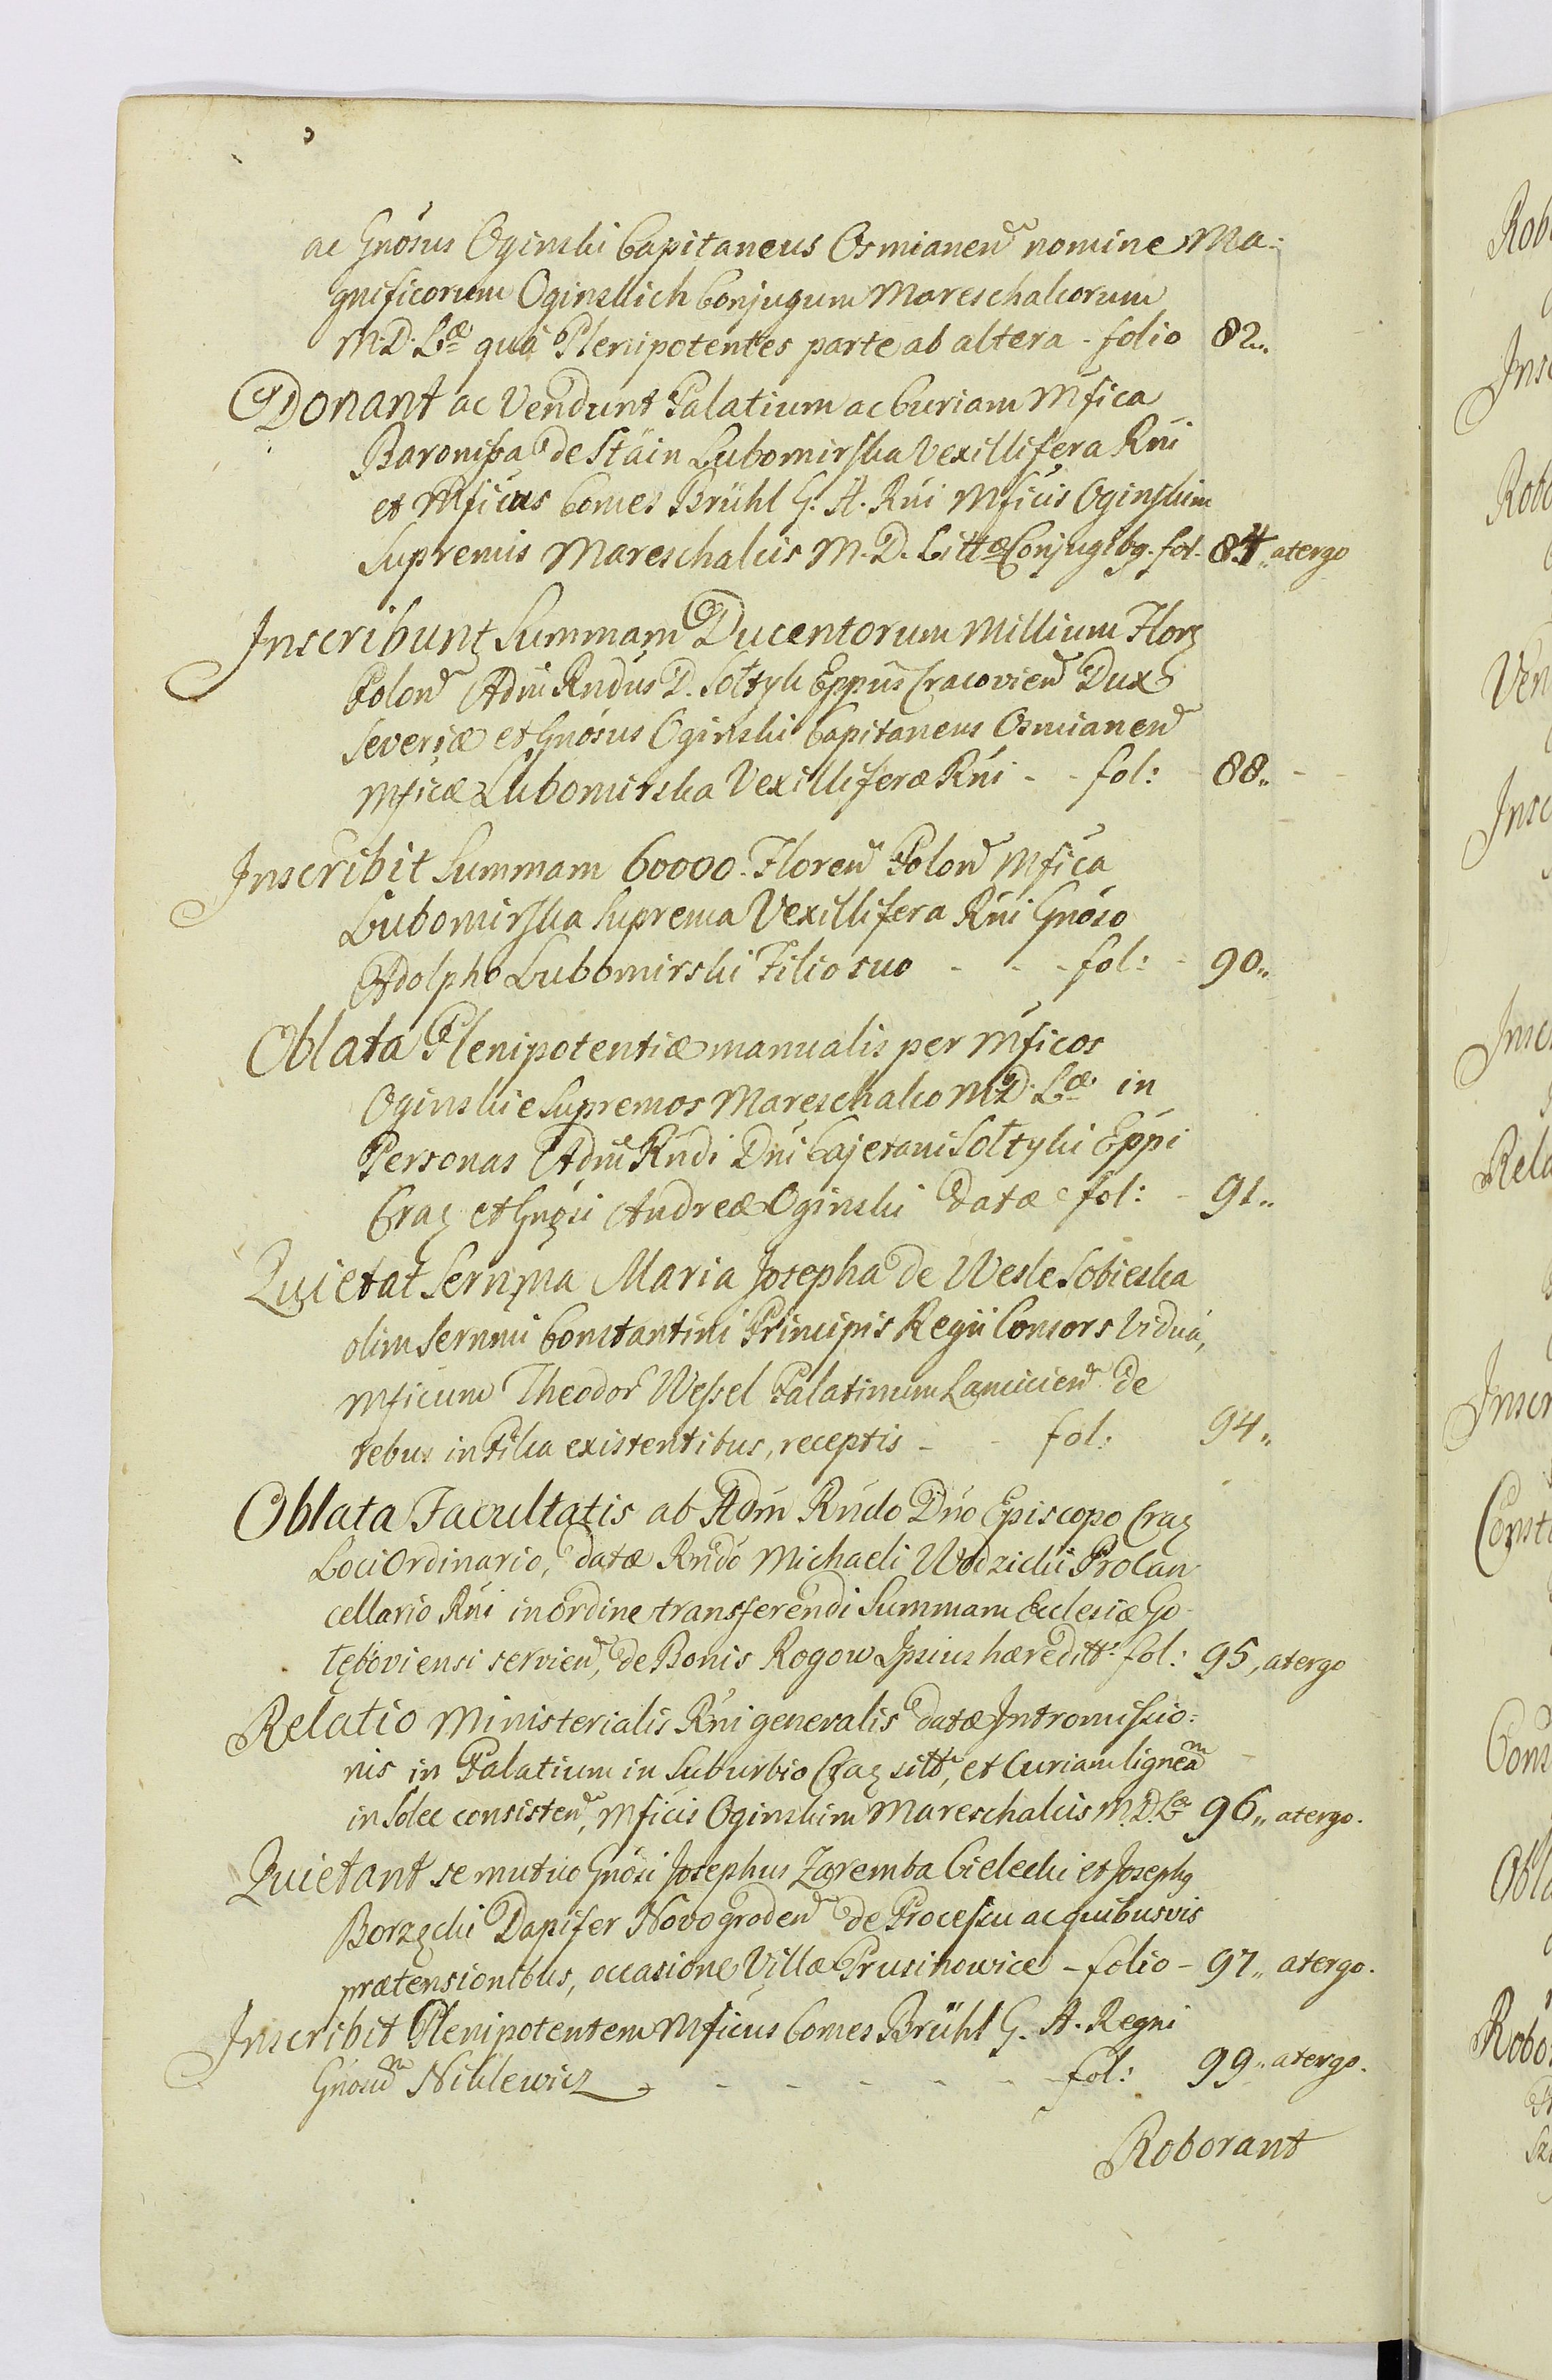 ac Gnosus Oginski Capitaneus Osmianen nomine Ma-
gnificorum Oginskich Conjugum Mareschalcorum
M. D. Læ quá Plenipotentes parte ab altera - folio 82..
Donant ac Vendunt Palatium ac Curiam Mfica
Baronissa de Stäin Lubomirska Vexillifera Rni
et Mficus Comes Brühl G. A. Rni Mficis Oginskim
Supremis Mareschalcis M. D. Littæ Conjugibg. fol. 84.. atergo
Inscribunt Summam Ducentorum Millium Florz
Polon Adm Rndus D. Sołtyk Eppus Cracovien Dux
Severiæ et Gnosus Oginski Capitaneus Osmianen
Mficæ Lubomirska Vexilliferæ Rni - - fol: - 88..
Inscribit Summam 60000. Floren Polon Mfica
Lubomirska Suprema Vexillifera Rni Gnoso
Adolpho Lubomirski Filio suo - - - fol: - 90..
Oblata Plenipotentiæ manualis per Mficos
Oginskie Supremos Mareschalco M. D. Læ in
Personas Adm Rndi Dni Cajetani Sołtyki Eppi
Craz et Gnosi Andreæ Oginski datæ fol: - 91..
Quietat Sernma Maria Josepha de Wesle Sobieska
olim Sernmi Constantini Principis Regii Consors Vidua,
Mficum Theodor Wessel Palatinum Lancicien de
rebus in Pilica existentibus, receptis - - fol: 94..
Oblata Facultatis ab Adm Rndo Dno Episcopo Craz
Loci Ordinario, datæ Rndo Michaeli Wodzicki Procan
cellario Rni in ordine transferendi Summam Ecclesiæ Go-
łęboviensi servien, de Bonis Rogow Ipsius hæreditt. fol: 95, atergo
Relatio Ministerialis Rni generalis datæ Intromissio-
nis in Palatium in Suburbio Craz sitt, et Curiam ligneam
in Solec consisten, Mficis Oginskim Mareschalcis M. D. Læ 96.. atergo.
Quietant se mutuo Gnosi Josephus Zaremba Cielecki et Josephg
Borzęcki Dapifer Novogroden de Processu ac quibusvis
prætensionibus, occasione Villæ Prusinowice - folio - 97.. atergo.
Inscribit Plenipotentem Mficus Comes Brühl G. A. Regni
Gnosum Niklewicz - - - - - - fol: 99.. atergo.
Roborant